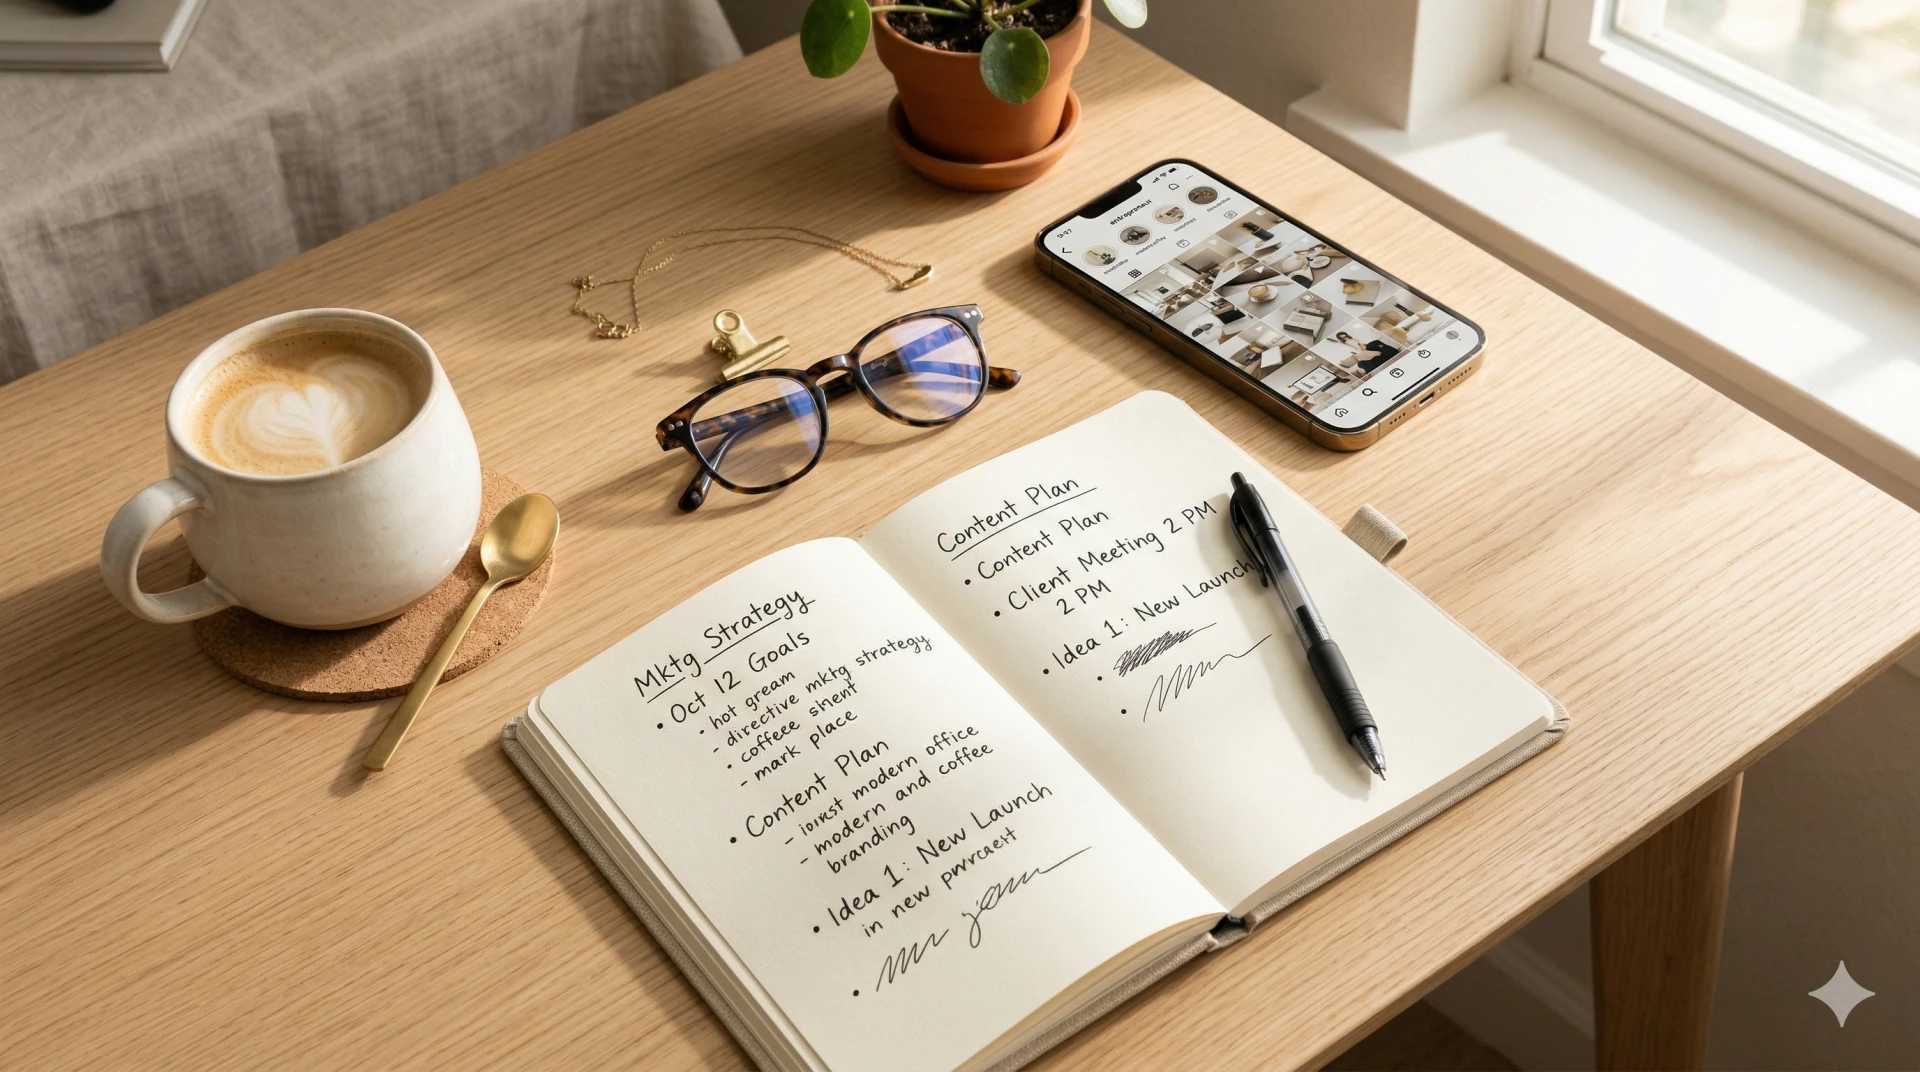 Mktg Strategy
• Oct 12 Goals
• hot gream
- directive mktg strategy
• coffeee shent
- mark place
• Content Plan
- modern office
- modern and coffee
- branding
• Idea 1: New Launch
in new
Content Plan
• Content Plan
• Client Meeting 2 PM
2 PM
• Idea 1: New Launch
9:27
entrepreneur